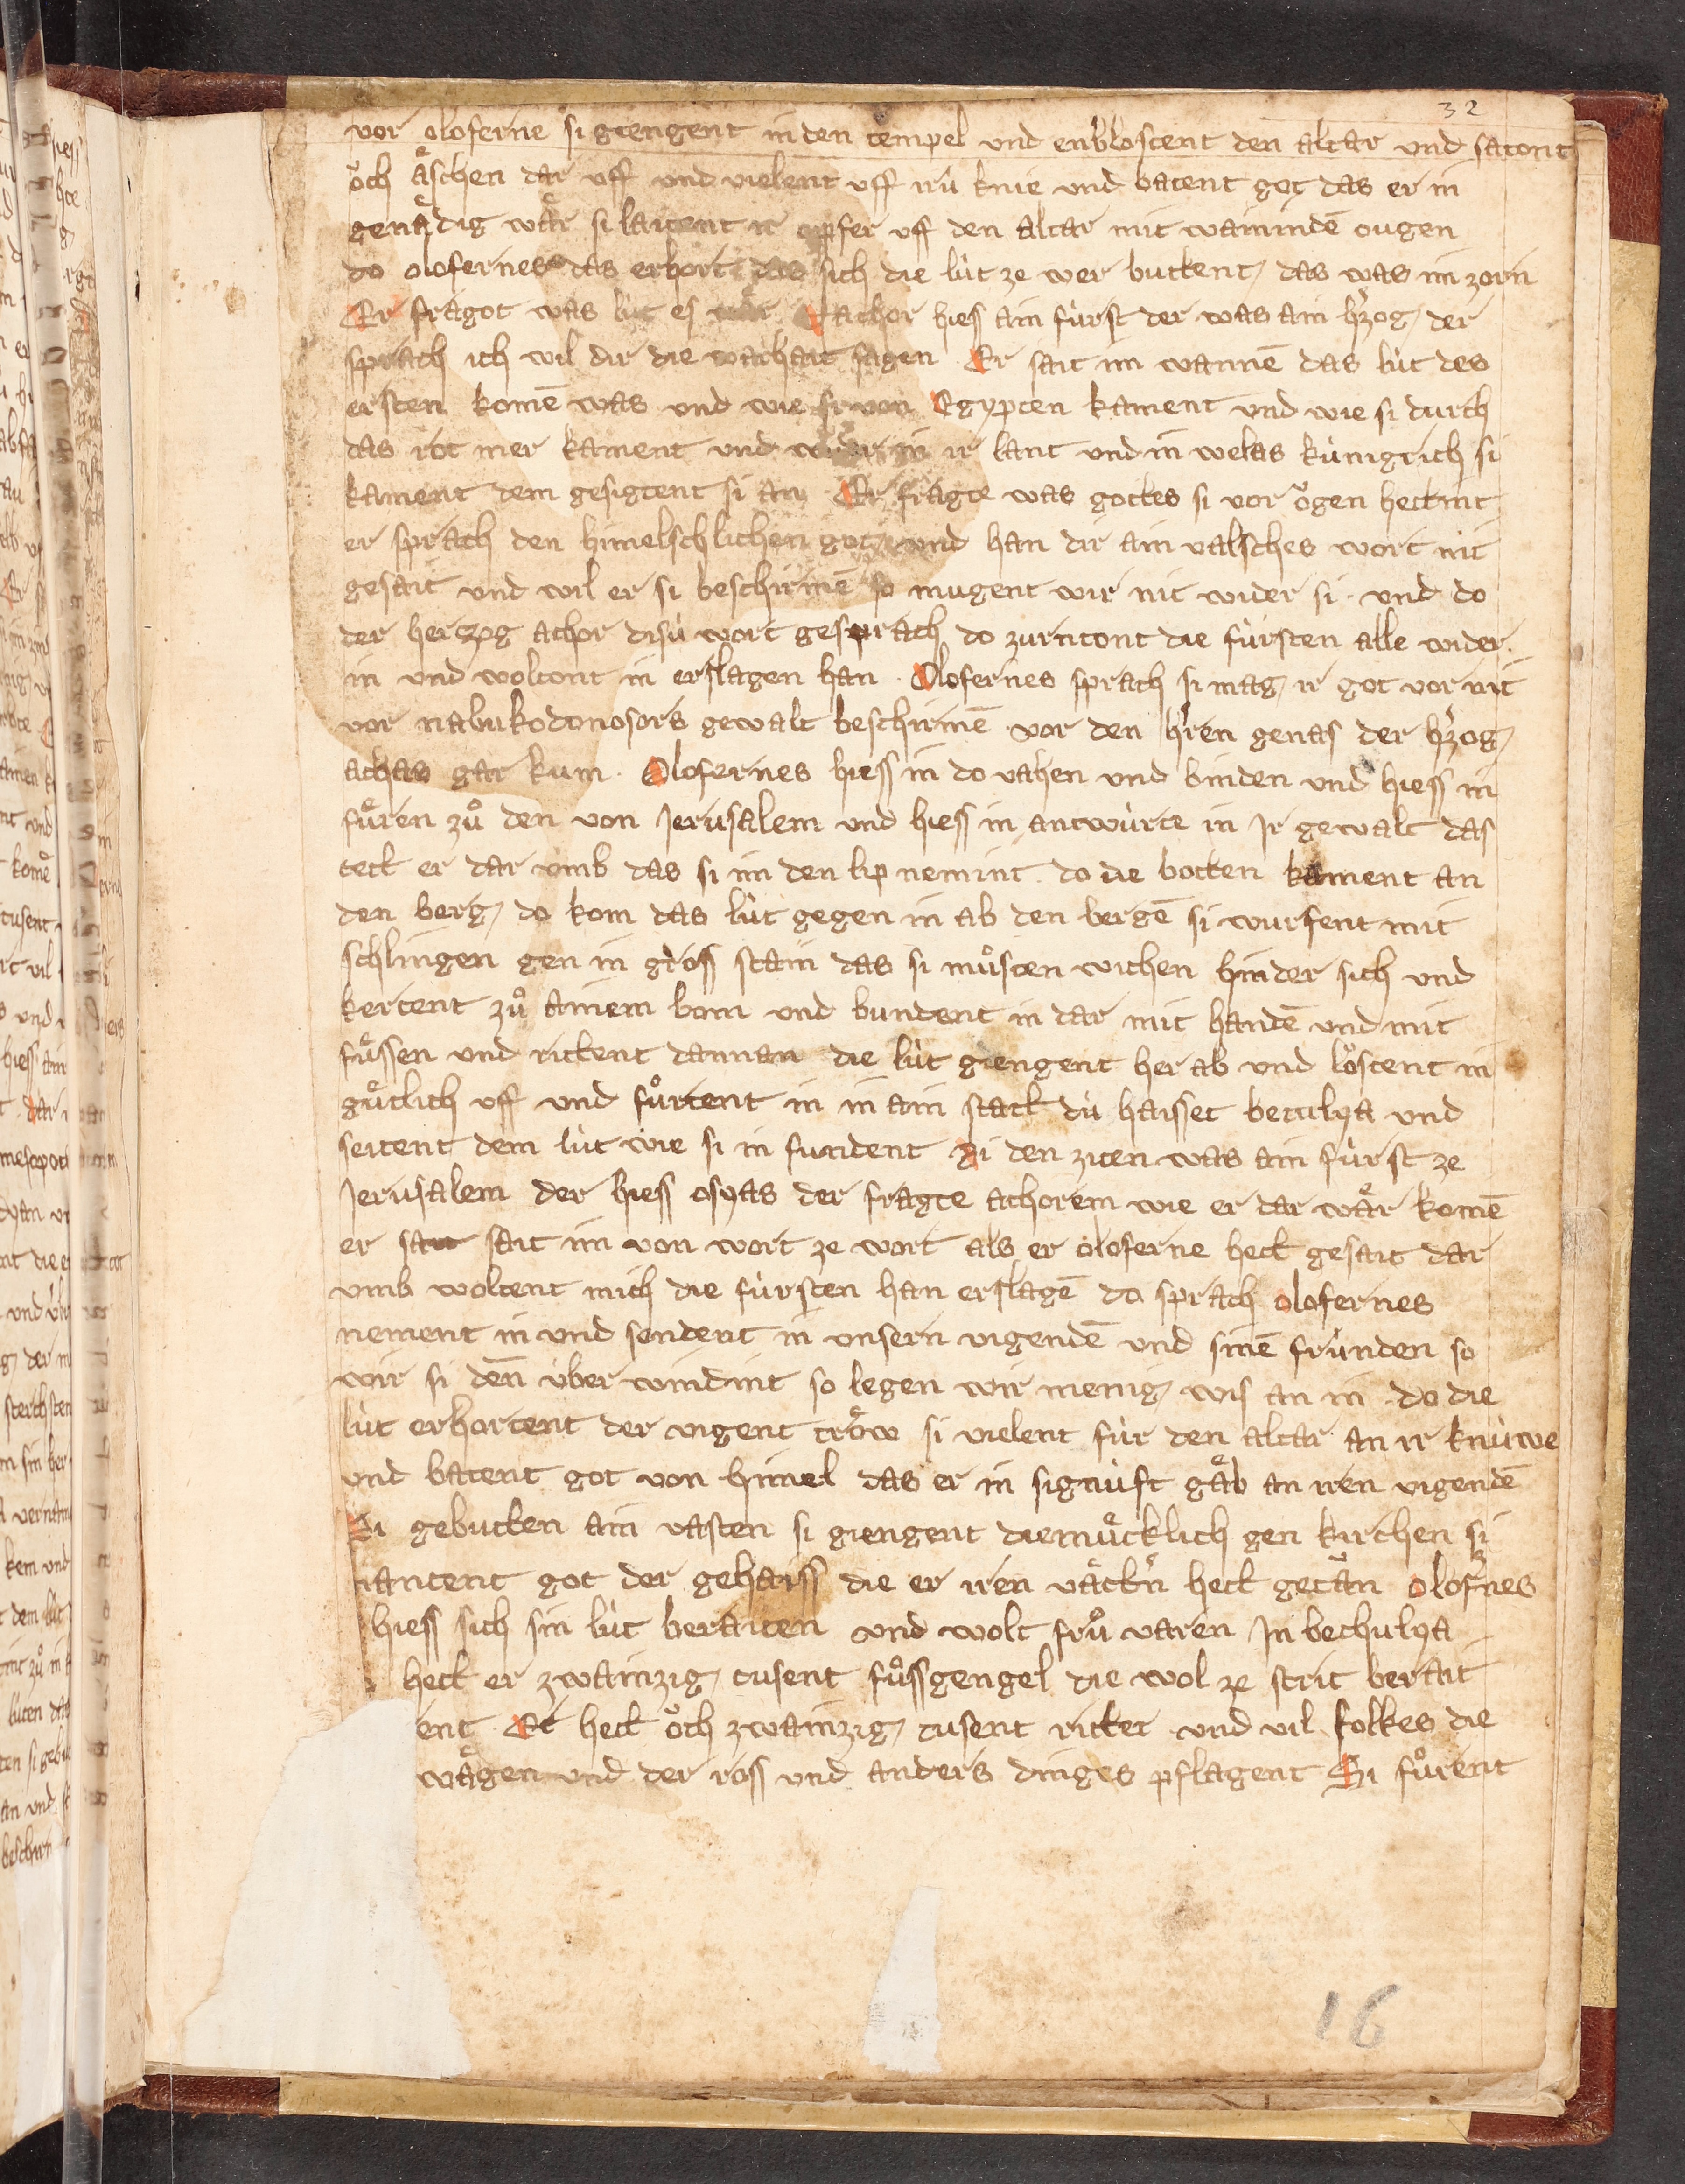 32
vor oloferne si giengent in den tempel vnd enblostent den altar vnd satont
öch äschen dar vff vnd vielent vff irü knie vnd batent got das er in
genädig wär si laitent ir opfer vff den altar mit wainindē ougen
do olofernes das erhort das sich die lüt ze wer buttent das was im zorn
Er fragot was lüt es wär Hachor hies ain fürst der was ain hʼzog der
sprach ich wil dir die warhait sagen Er sait im wannē das lüt des
ersten komē was vnd wie si von Egypten kament vnd wie si durch
das rot mer kament vnd wider in ir lant vnd in welas künigrich si
kament dem gesigtent si an Er fragte was gottes si vor ögen hettint
er sprach den himelschlichen got vnd han dir ain valsches wort nit
gesait vnd wil er si beschirmē so mugent wir nit wider si vnd do
der herzog achor disü wort gesprach do zurntont die fürsten alle wider
in vnd woltont in erslagen han Olofernes sprach si mag ir got vor nit
vor nabukodonosors gewalt beschirmē vor den hʼren genas der hʼzog
achas gar kum Olofernes hiess in do vahen vnd binden vnd hiess in
füren zů den von Jerusalem vnd hiess in antwürte in Jr gewalt das
tett er dar vmb das si im den lip nemint do die botten kament an
den berg do kom das lüt gegen in ab den bergē si wurfent mit
schlingen gen in gross stain das si můsten wichen hinder sich vnd
kertent zů ainem bom vnd bundent in dar mit handē vnd mit
füssen vnd rittent dannan die lüt giengent her ab vnd löstent in
gůtlich vff vnd fůrtent in in ain statt dü haisset betulya vnd
seitent dem lüt wie si in fundent Zi den ziten was ain fürst ze
Jerusalem der hiess osyas der fragte achorem wie er dar wär komē
er sait sait im von wort ze wort als er oloferne hett gesait dar
vmb woltent mich die fürsten han erslagē do sprach olofernes
nement in vnd sendent in vnsern vigendē vnd sinē fründen so
wir si deñ über windint so legen wir menig wis an in do die
lüt erhortent der vigent tröw si vielent für den altar an ir knüwe
vnd batent got von himel das er in signüft gäb an iren vigendē
Si gebutten ain vasten si giengent diemütklich gen kirchen si
nantent got der gehaiss die er iren vättʼn hett getän olofʼnes
hiess sich sin lüt beraiten vnd wolt frů varen Jn bethulya
hett er zwainzig tusent fůssgengel die wol ze strit berait
ent Er hett öch zwainzig tusent ritter vnd vil folkes die
wägen vnd der ross vnd anders dinges pflagent Si fůrent
16